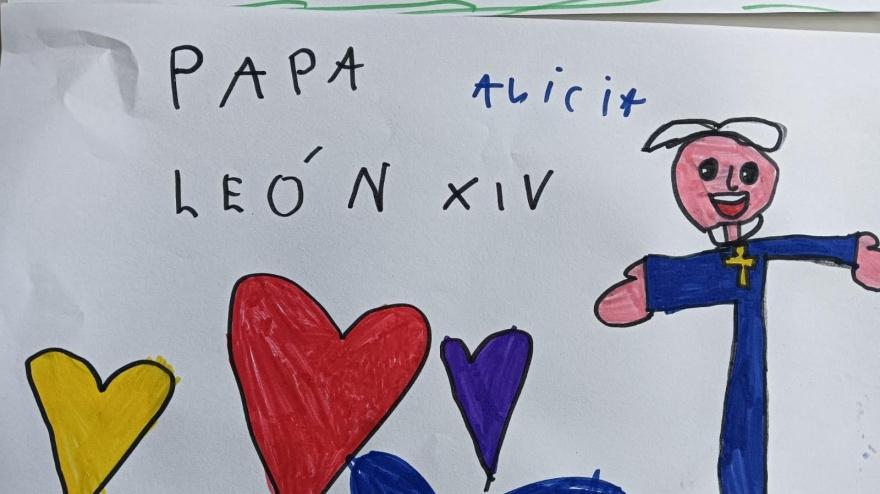 PAPA
ALiCiA
LEÓN XIV